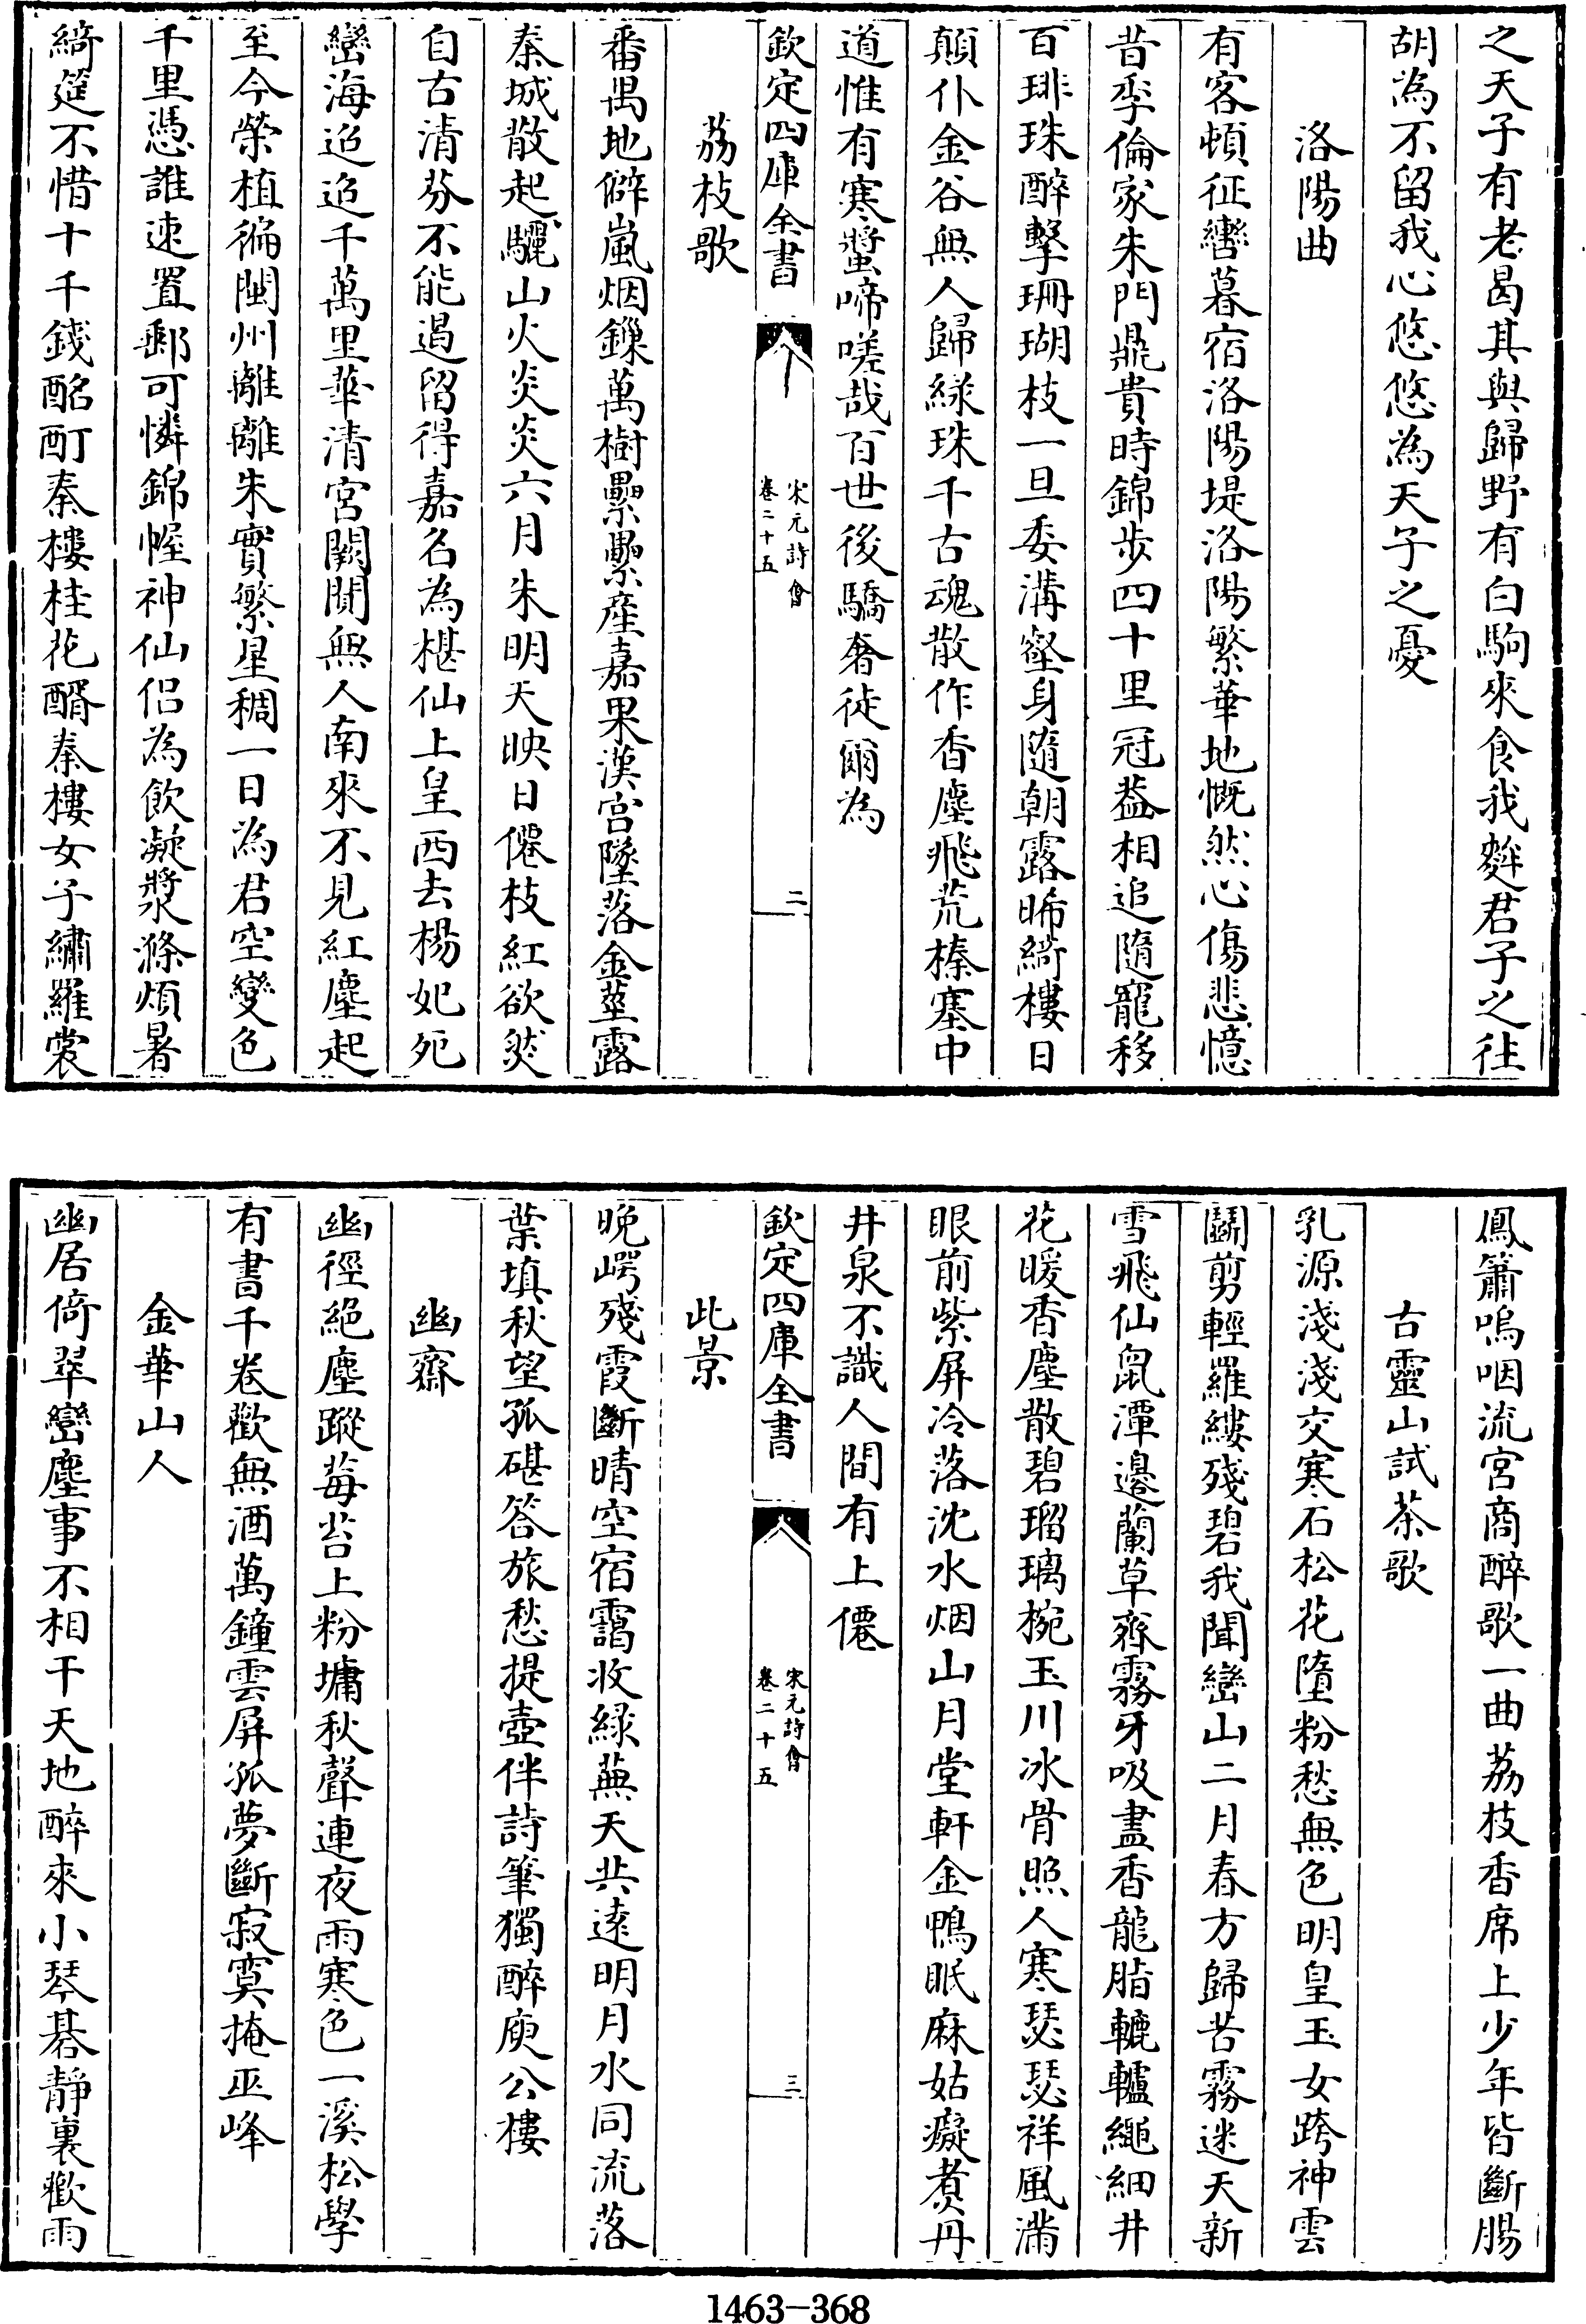 之天子有老曷其與歸野有白駒來食我麰君子之徃
胡為不留我心悠悠為天子之憂
洛陽曲
有客頓征轡暮宿洛陽堤洛陽繁華地慨然心傷悲憶
昔季倫家朱門鼎貴時錦步四十里冠葢相追隨寵移
百琲珠醉擊珊瑚枝一旦委溝壑身隨朝露晞綺樓日
顛仆金谷無人歸緑珠千古魂散作香塵飛荒榛塞中
道惟有寒螿啼嗟哉百世後驕奢徒爾為
欽定四庫全書
宋元詩會
卷二十五
二
荔枝歌
番禺地僻嵐烟鏁萬樹纍纍産嘉果漢宮墜落金莖露
秦城散起驪山火炎炎六月朱明天映日僊枝紅欲然
自古清芬不能遏留得嘉名為椹仙上皇西去楊妃死
巒海迢迢千萬里華清宮闕閴無人南來不見紅塵起
至今榮植徧閩州離離朱實繁星稠一日為君空變色
千里憑誰速置郵可憐錦幄神仙侣為飲凝漿滌煩暑
綺筵不惜十千錢酩酊秦樓桂花醑秦樓女子繡羅裳
鳳簫嗚咽流宮商醉歌一曲荔枝香席上少年皆斷腸
古靈山試茶歌
乳源淺淺交寒石松花墮粉愁無色明皇玉女跨神雲
鬭剪輕羅縷殘碧我聞巒山二月春方歸苦霧迷天新
雪飛仙鼠潭邊蘭草齊霧牙吸盡香龍脂轆轤繩細井
花暖香塵散碧瑠璃椀玉川冰骨照人寒瑟瑟祥風滿
眼前紫屏冷落沈水烟山月堂軒金鴨眠麻姑癡煮丹
井泉不識人間有上僊
欽定四庫全書
宋元詩會
卷二十五
三
此景
晚崿殘霞斷晴空宿靄收緑蕪天共遠明月水同流落
葉填秋望孤碪答旅愁提壺伴詩筆獨醉庾公樓
幽齋
幽徑絕塵蹤莓苔上粉墉秋聲連夜雨寒色一溪松學
有書千卷歡無酒萬鐘雲屏孤夢斷寂寞掩巫峰
金華山人
幽居倚翠巒塵事不相干天地醉來小琴碁靜裏歡雨
1463-368